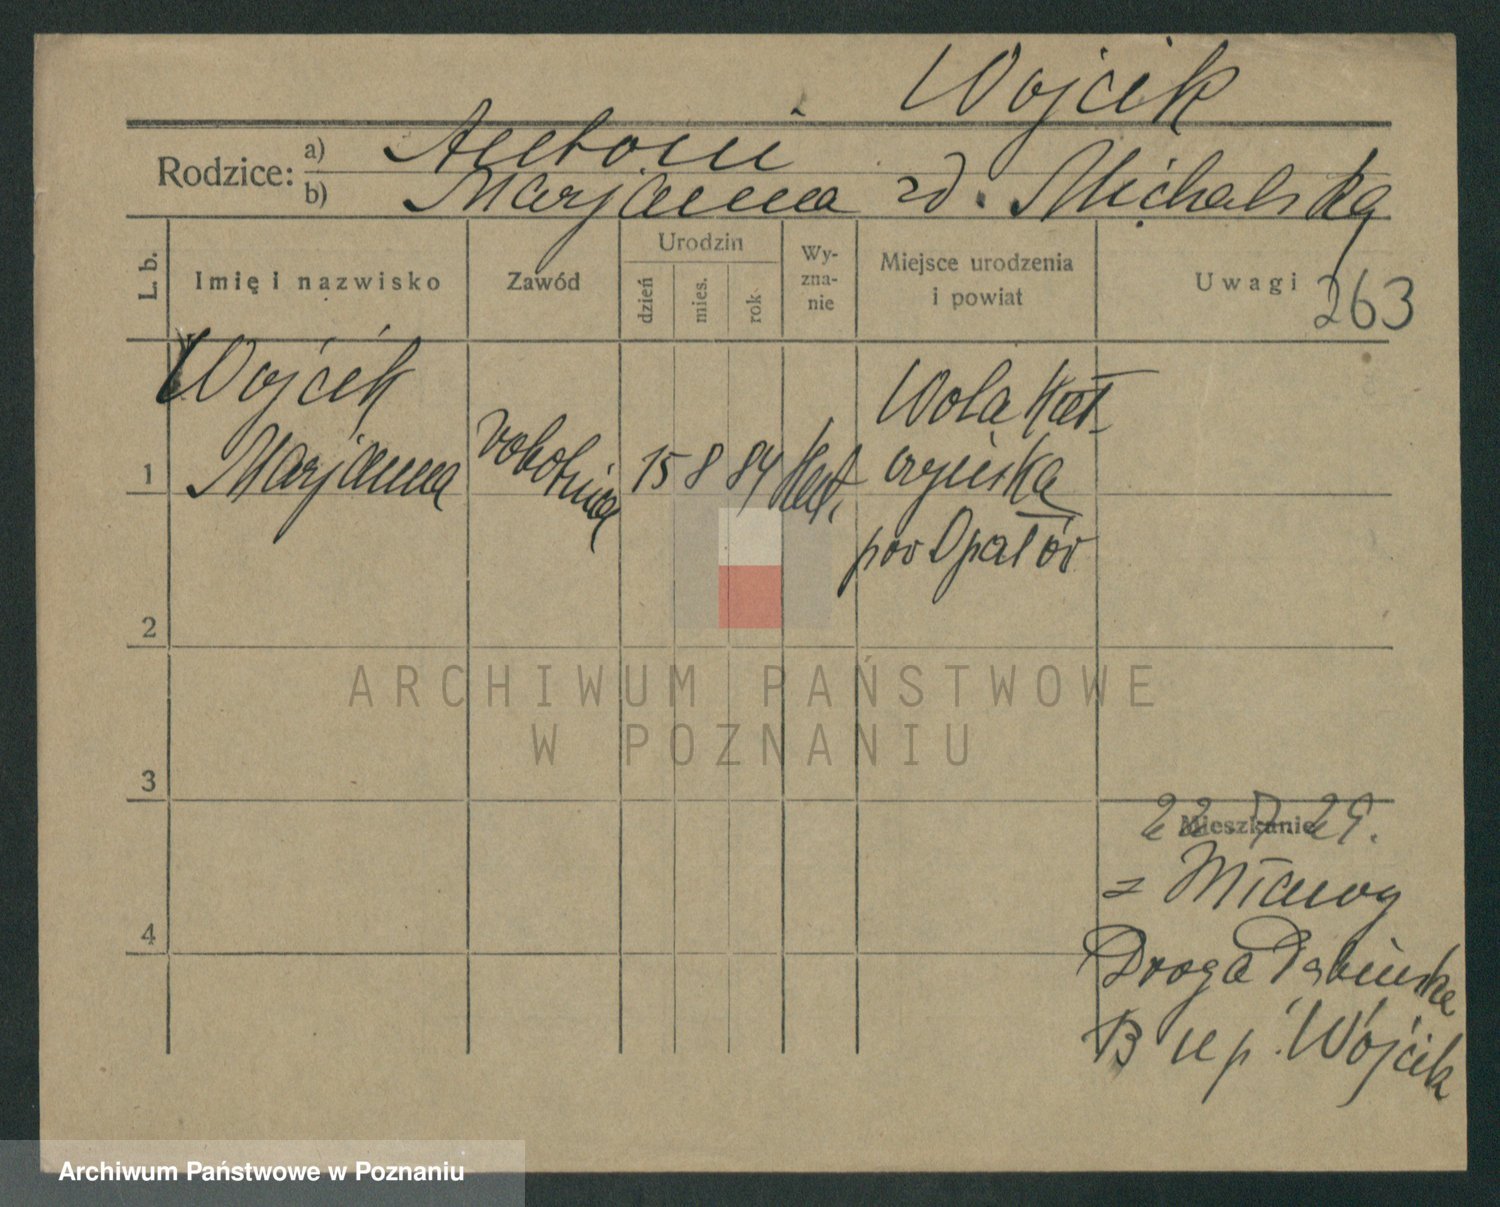 Wojcik
Rodzice: a) Antoni
b) Marjanna zd. Michalska
L. b. Imię i nazwisko Zawód Urodzin dzień mies. rok Wyznanie Miejsce urodzenia i powiat Uwagi
263
Wójcik
1 Marjanna robotnica 15 8 84 kat.
Wola
pow Opatów
2
3
4
Mieszkanie
22.7.29.
z Mławy
Droga Dębińska
B u p. Wójcik
ARCHIWUM PAŃSTWOWE
W POZNANIU
Archiwum Państwowe w Poznaniu